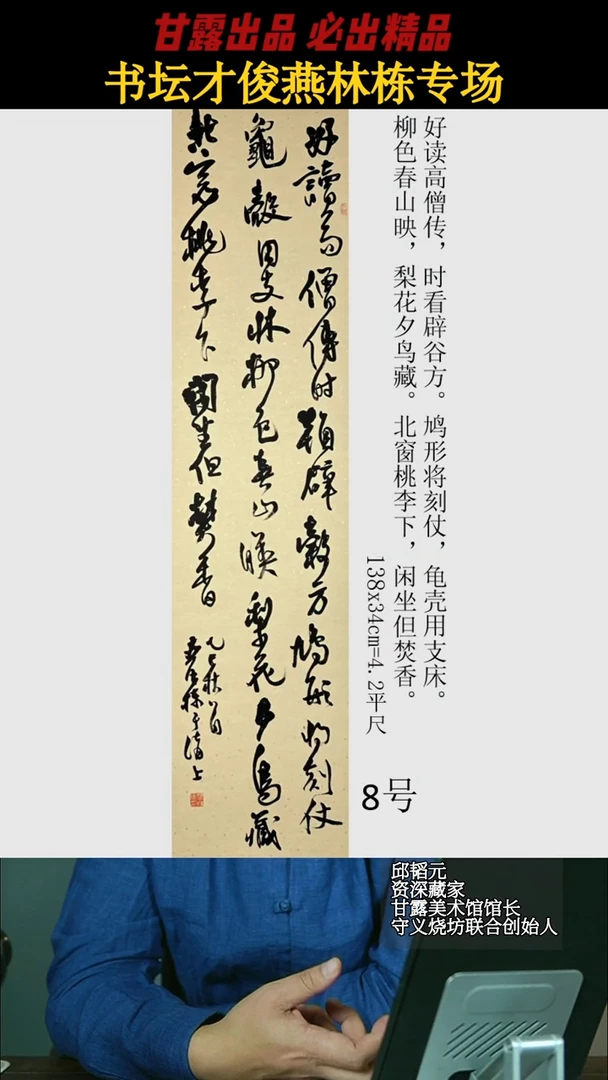 甘露出品 必出精品
书坛才俊燕林栋专场
好讀高僧傳時看辟穀方鳩形将刻仗
龜殼用支牀柳色春山暎梨花夕鳥藏
北窓桃李下閑坐但焚香
乙巳秋八月
燕林棟于
好读高僧传，时看辟谷方。鸠形将刻仗，龟壳用支床。
柳色春山映，梨花夕鸟藏。北窗桃李下，闲坐但焚香。
138x34cm=4.2平尺
8号
邱韬元
资深藏家
甘露美术馆馆长
守义烧坊联合创始人